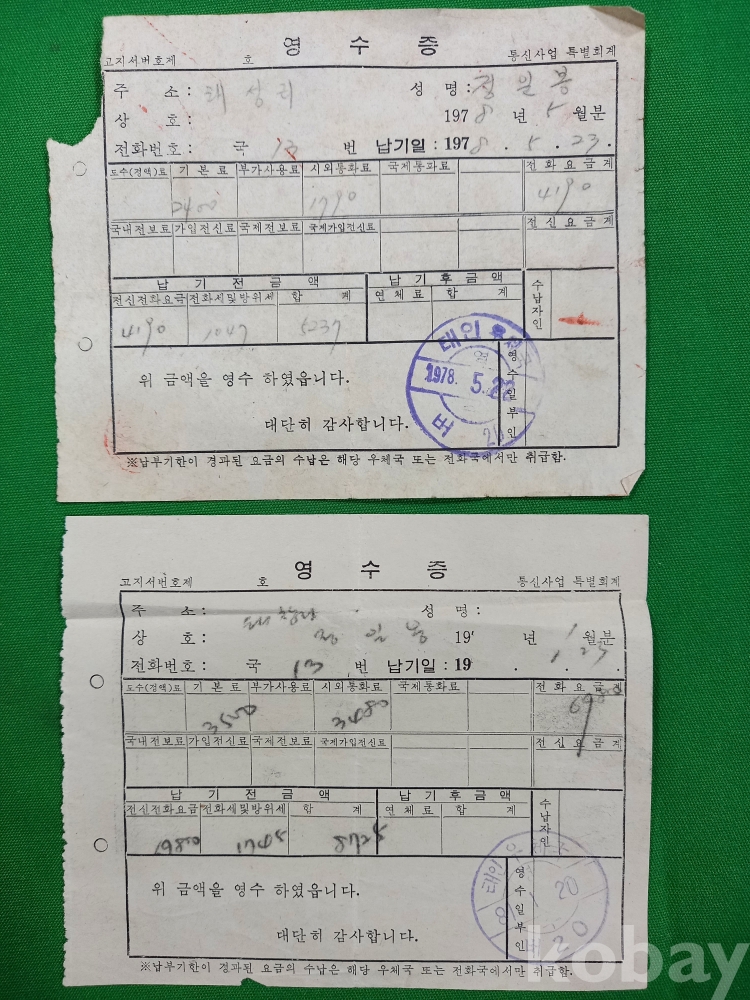 영 수 증
고지서번호제 호 통신사업 특별회계
주 소: 태상리 성 명: 정일봉
상 호: 1978년 5월분
전화번호: 국 13 번 납기일: 1978. 5. 23.
도수(정액)료 기 본 료 부가사용료 시외통화료 국제통화료 전화요금계
2400 1790 4190
국내전보료 가입전신료 국제전보료 국제가입전신료 전신요금계
납 기 전 금 액 납 기 후 금 액 수납자인
전신전화요금 전화세및방위세 합 계 연 체 료 합 계
4190 1047 5237
태인 우체국
1978. 5. 22
위 금액을 영수 하였읍니다.
대단히 감사합니다.
영수일부인
※납부기한이 경과된 요금의 수납은 해당 우체국 또는 전화국에서만 취급함.
영 수 증
고지서번호제 호 통신사업 특별회계
주 소: 성 명:
상 호: 정일봉 19 년 1월분
전화번호: 국 13 번 납기일: 19 . 1. 23
도수(정액)료 기 본 료 부가사용료 시외통화료 국제통화료 전화요금계
3500 3480 6980
국내전보료 가입전신료 국제전보료 국제가입전신료 전신요금계
납 기 전 금 액 납 기 후 금 액 수납자인
전신전화요금 전화세및방위세 합 계 연 체 료 합 계
6980 1745 8725
태인 우체국
20
위 금액을 영수 하였읍니다.
대단히 감사합니다.
영수일부인
※납부기한이 경과된 요금의 수납은 해당 우체국 또는 전화국에서만 취급함.
kobay